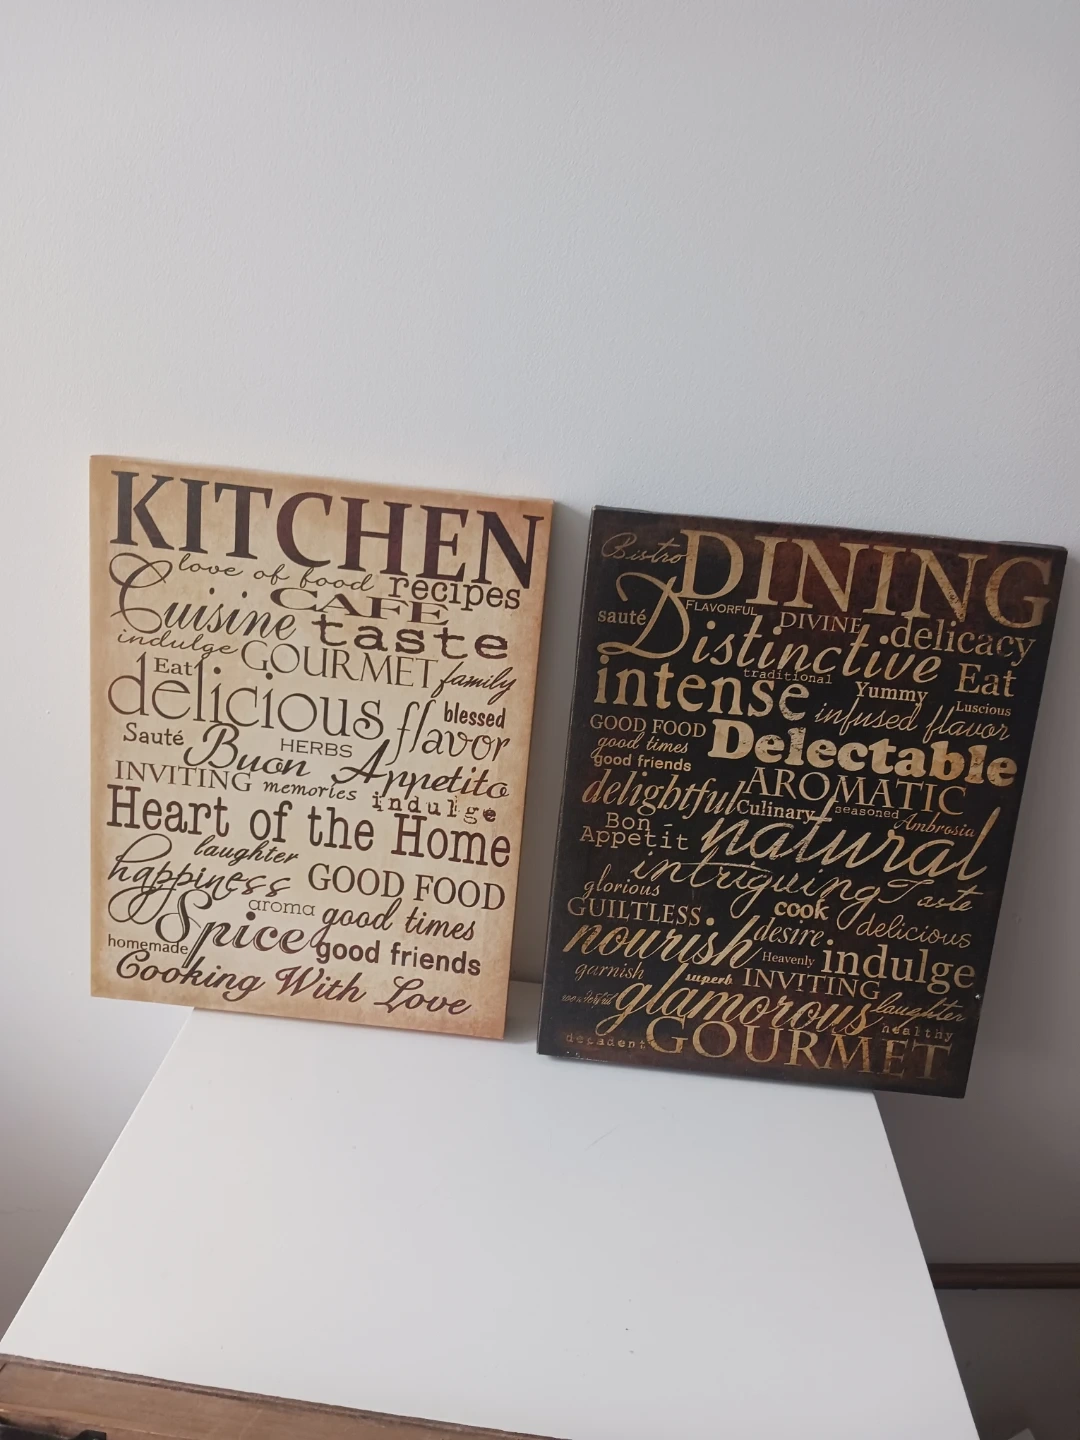 KITCHEN
love of food recipes
CAFE
Cuisine taste
indulge GOURMET family
Eat
delicious flavor blessed
Sauté Buon HERBS Appetito
INVITING memories indulge
Heart of the Home
laughter
happiness GOOD FOOD
aroma good times
Spice
homemade good friends
Cooking With Love
Bistro DINING
FLAVORFUL DIVINE delicacy
sauté Distinctive Eat
traditional Yummy Luscious
intense infused flavor
GOOD FOOD
good times Delectable
good friends
AROMATIC
delightful Culinary seasoned Ambrosia
Bon
Appétit natural
intriguing Taste
glorious cook
GUILTLESS desire delicious
nourish Heavenly indulge
garnish superb INVITING
wonderful glamorous laughter
healthy
decadent GOURMET